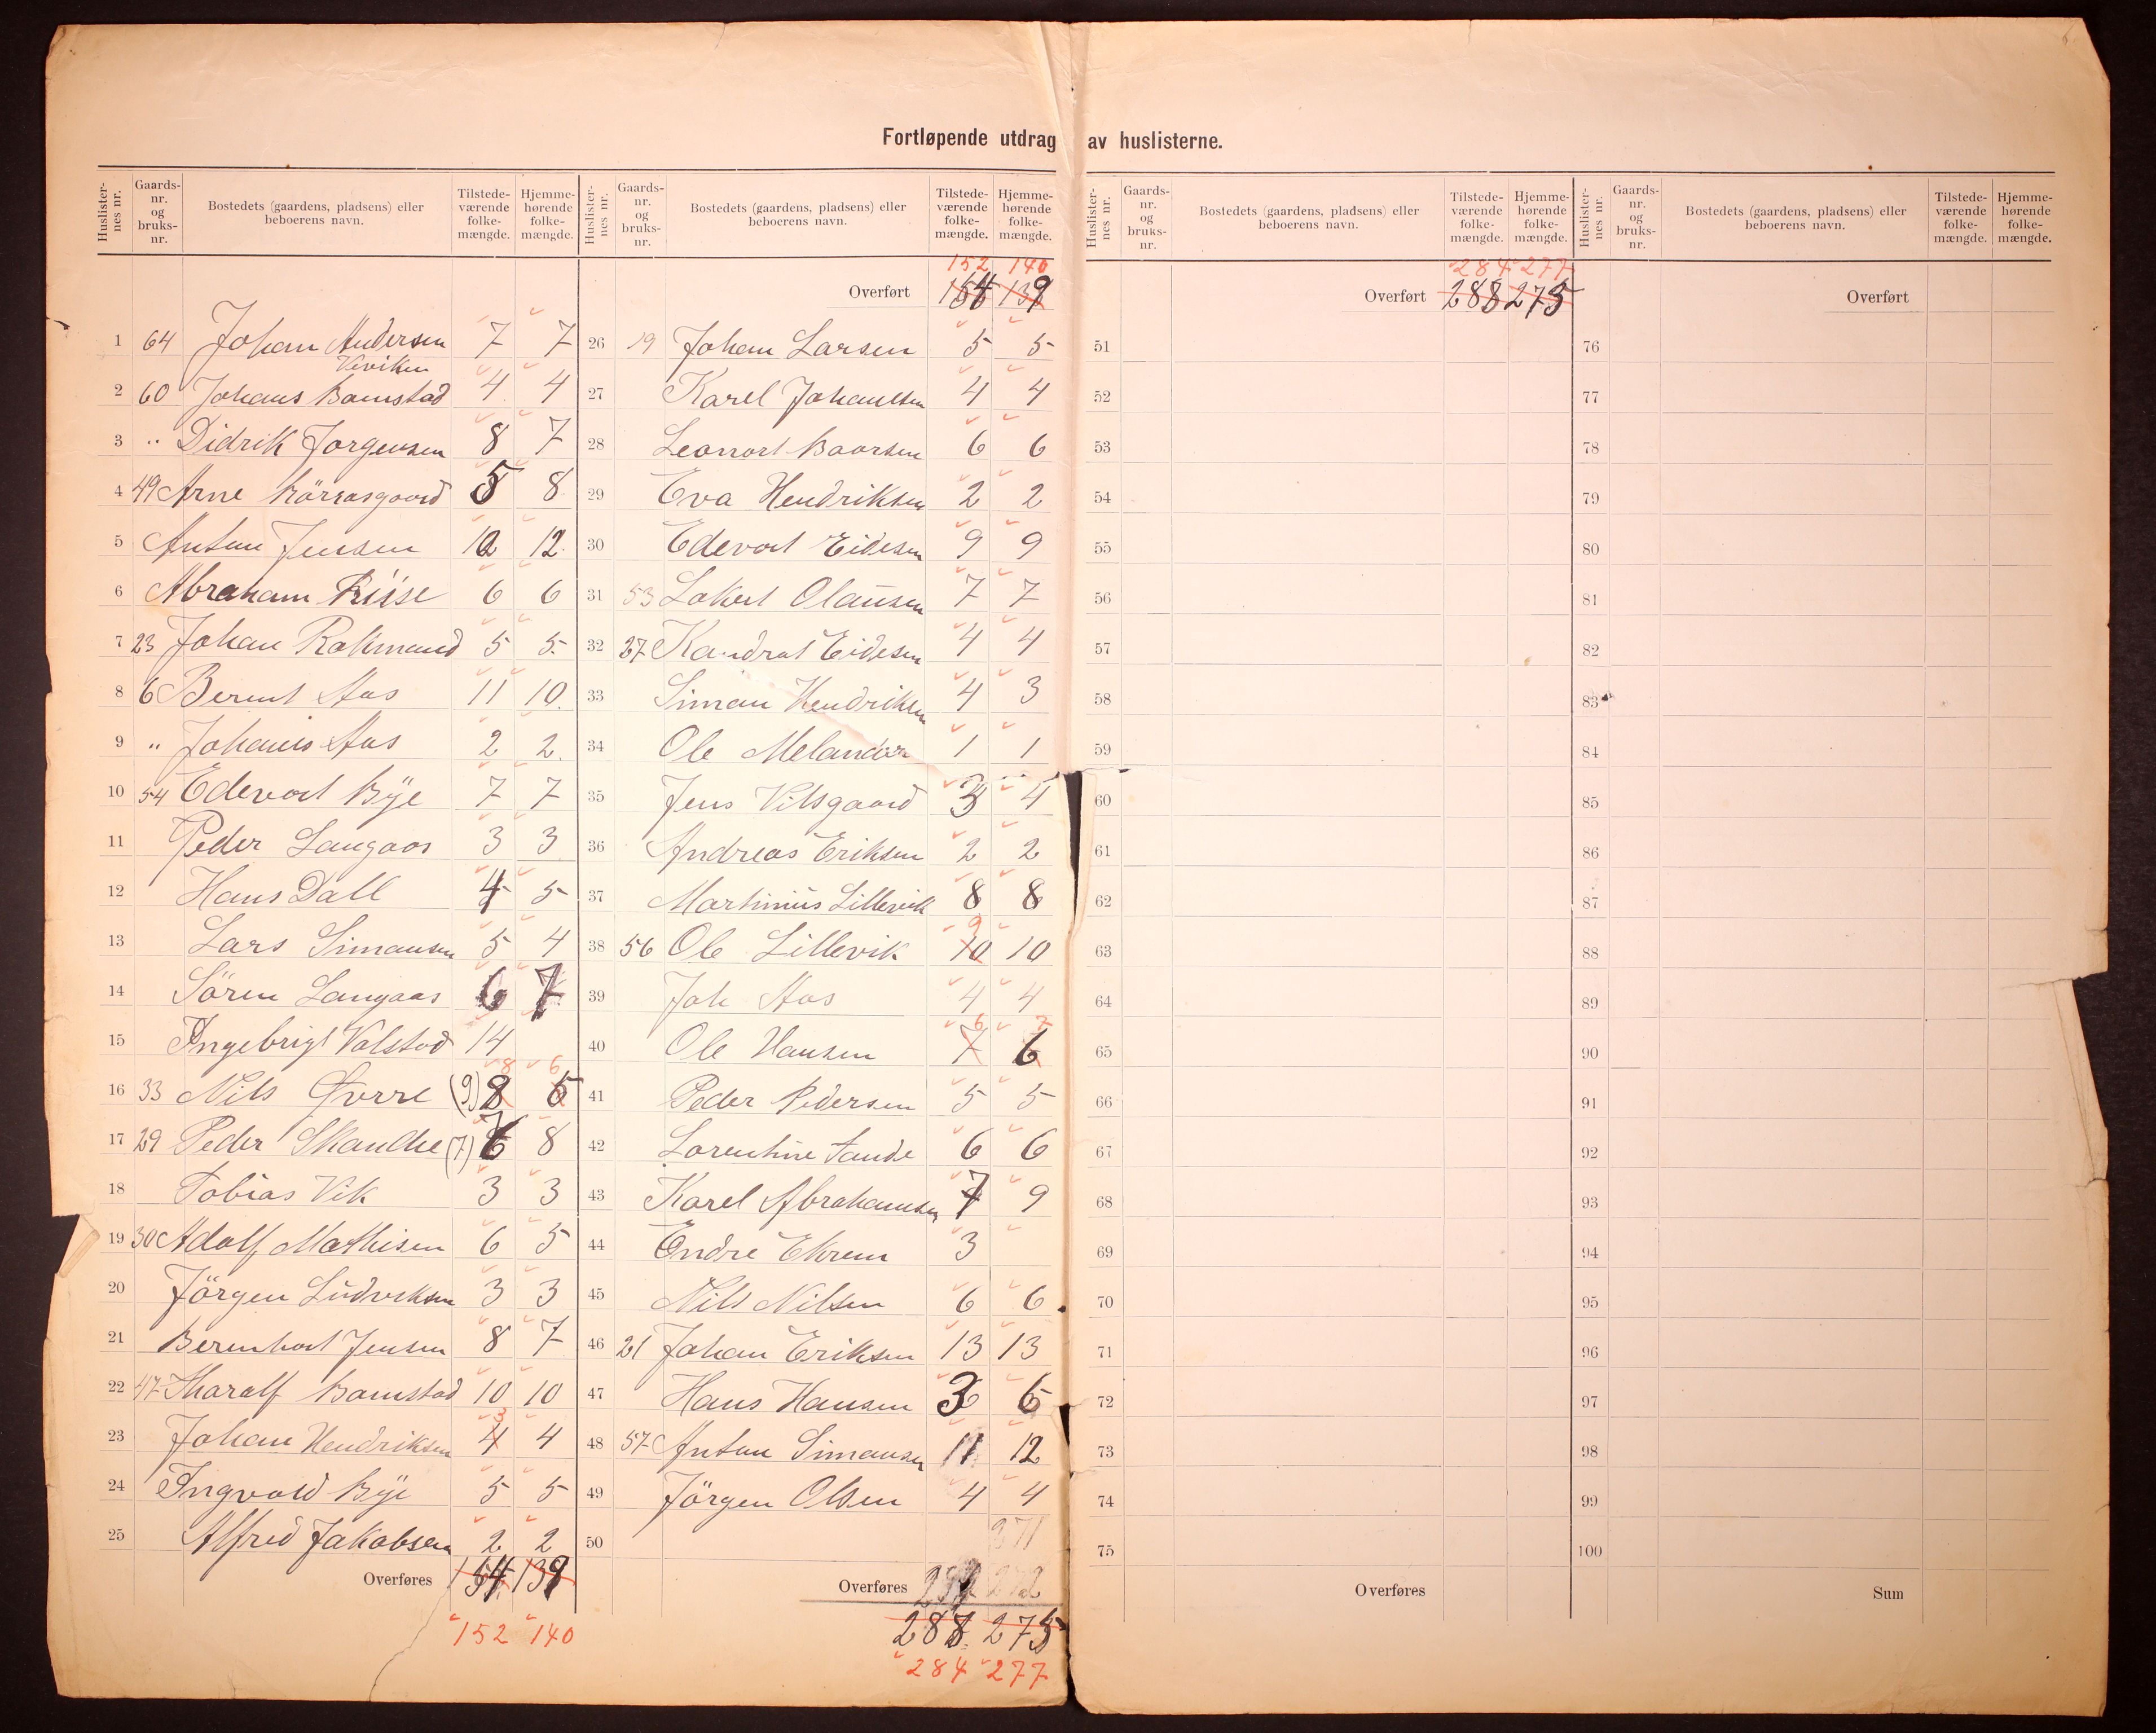 Fortløpende utdrag av huslisterne.
Huslisternes nr. Gaards-nr. og bruks-nr. Bostedets (gaardens, pladsens) eller beboerens navn. Tilstede-værende folke-mængde. Hjemme-hørende folke-mængde.
1 64 Johan Andersen Veviken 7 7
2 60 Johans Bamstad 4 4
3 " Didrik Jorgensen 8 7
4 49 Arne 5 8
5 Anton Jensen 10 12
6 Abraham Riise 6 6
7 23 Johan Rokmand 5 5
8 6 Berent Aas 11 10
9 " Johanis Aas 2 2
10 54 Edevart Bye 7 7
11 Peder Langaas 3 3
12 Hans Dall 4 5
13 Lars Simansen 5 4
14 Sören Langaas 6 7
15 Ingebrigt Valstad 14
16 33 Nils (9) 8 6
17 29 Peder (7) 6 8
18 Tobias Vik 3 3
19 30 Adolf Mathisen 6 5
20 Jörgen Ludveksen 3 3
21 Berenhart Jensen 8 7
22 47 Tharalf Bamstad 10 10
23 Johan Hendriksen 4 3 4
24 Ingvald Bye 5 5
25 Alfred Jakobsen 2 2
Overføres 154 139
152 140
Huslisternes nr. Gaards-nr. og bruks-nr. Bostedets (gaardens, pladsens) eller beboerens navn. Tilstede-værende folke-mængde. Hjemme-hørende folke-mængde.
152 140
Overført 154 139
26 19 Johan Larsen 5 5
27 Karel Johansen 4 4
28 Leonart Baarsen 6 6
29 Eva Hendriksen 2 2
30 Edevart Eidesen 9 9
31 53 Lokert Olausen 7 7
32 27 Kandrat Eidesen 4 4
33 Siman Hendriksen 4 3
34 Ole Melander 1 1
35 Jens Vilsgaard 3 4
36 Andreas Eriksen 2 2
37 Martinius Lillevik 8 8
38 56 Ole Lillevik 10 9 10
39 Joh Aas 4 4
40 Ole Hansen 7 6 6 7
41 Peder Pedersen 5 5
42 Lorentine Sande 6 6
43 Karel Abrahamsen 7 9
44 Endre Ekrem 3
45 Nils Nilsen 6 6
46 21 Johan Eriksen 13 13
47 Hans Hansen 3 6
48 57 Anton Simansen 11 12
49 Jörgen Olsen 4 4
50 271
Overføres 272
288 275
284 277
Huslisternes nr. Gaards-nr. og bruks-nr. Bostedets (gaardens, pladsens) eller beboerens navn. Tilstede-værende folke-mængde. Hjemme-hørende folke-mængde.
284 277
Overført 288 275
51
52
53
54
55
56
57
58
59
60
61
62
63
64
65
66
67
68
69
70
71
72
73
74
75
Overføres
Huslisternes nr. Gaards-nr. og bruks-nr. Bostedets (gaardens, pladsens) eller beboerens navn. Tilstede-værende folke-mængde. Hjemme-hørende folke-mængde.
Overført
76
77
78
79
80
81
82
83
84
85
86
87
88
89
90
91
92
93
94
95
96
97
98
99
100
Sum